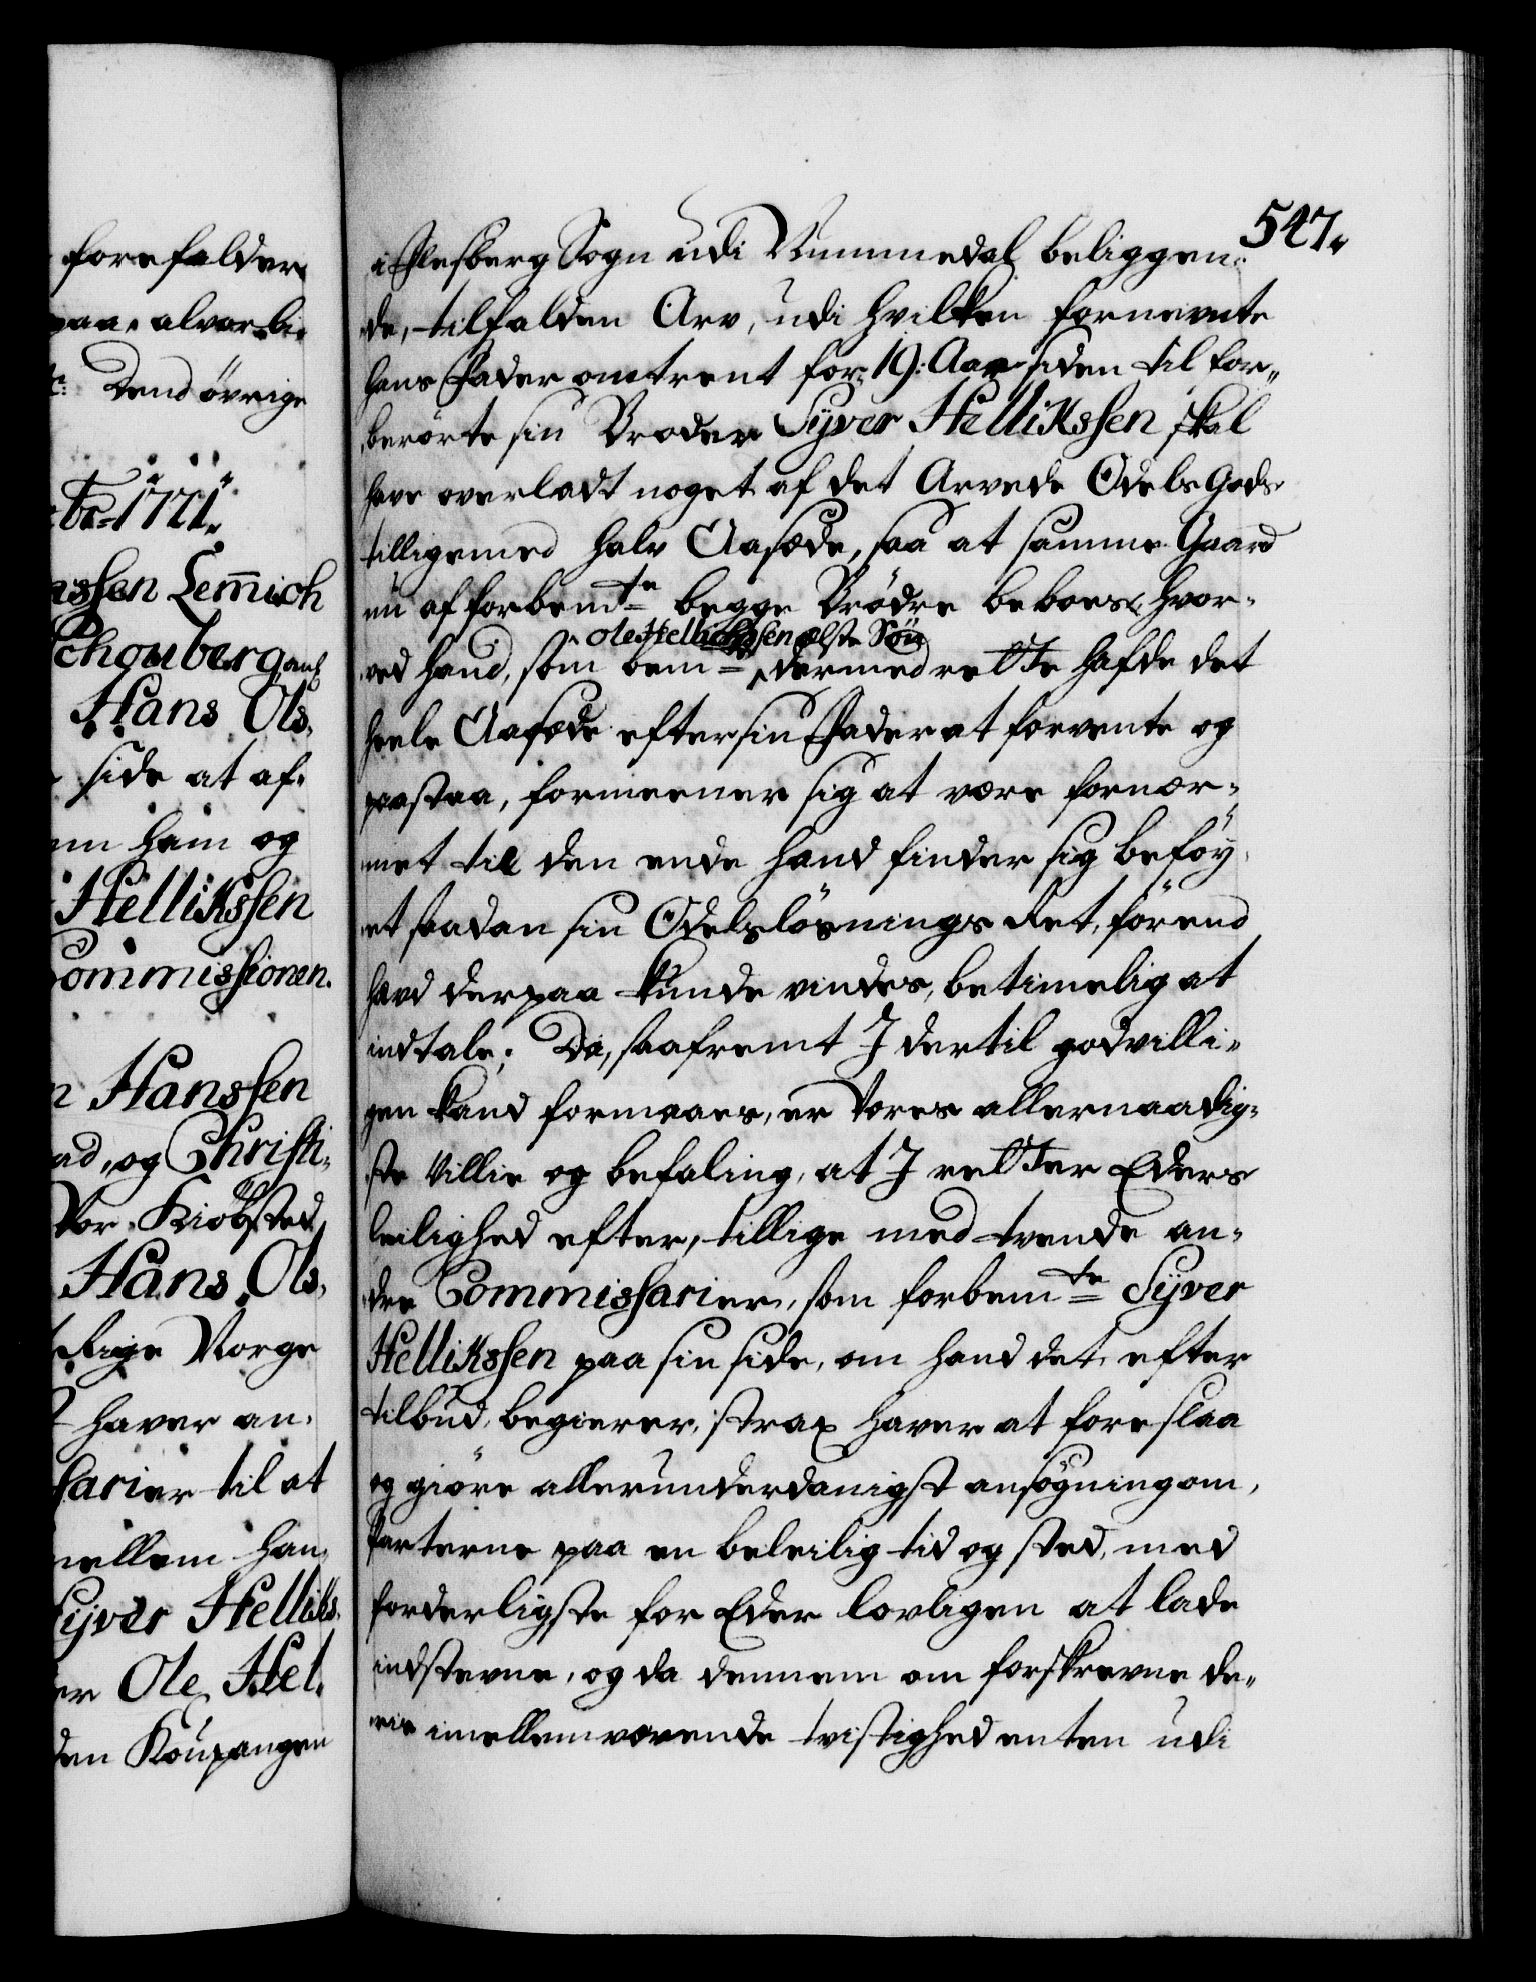 forefalder
paa, alvorli-
Dend övrige
br 1721.
nssen Lem̄ich
Schouberg, anl
Hans Ols.
side at af-
ham og
Hellikssen
Commissionen.
Hanssen
ad, og Christi-
Vor Kiöbsted
Hans Ols.
Rige Norge
haver an-
sarier til at
mellem han
Syver Helliks.
er Ole Hel.
den Koupangen
547.
i Flesberg Sogn udi Nummedal beliggen-
de, tilfalden Arv, udi hvilken fornevnte
hans Fader omtrent for 19: Aar siden til for-
berörte sin Broder Syver Hellikssen skal
have overladt noget af det Arvede Odels Gods
tilligemed halv Aasæde, saa at samme Gaard
nu af forbemte begge Brödre beboes, hvor-
Ole Hellichssen ælste Sön
ved hand, som bemte dermed rette hafde det
heele Aasæde efter sin Fader at forvente og
paastaa, formeener sig at være fornær-
met til den ende hand finder sig beföy-
et saadan sin Odelslösnings Ret, förend
hævd derpaa kunde vindes, betimelig at
indtale; Da, saafremt I dertil godvilli-
gen kand formaaes, er Vores allernaadig-
ste Villie og befaling, at I retter Eders
leilighed efter, tillige med tvende an-
dre Commissarier, som forbemte Syver
Hellikssen paa sin side, om hand det, efter
tilbud, begierer, strax haver at foreslaa
og giöre allerunderdanigst ansögning om,
Parterne paa en beleilig tid og sted, med
forderligste for Eder lovligen at lade
indstevne, og da dennem om forskrevne de-
ris imellemværende tvistighed enten udi